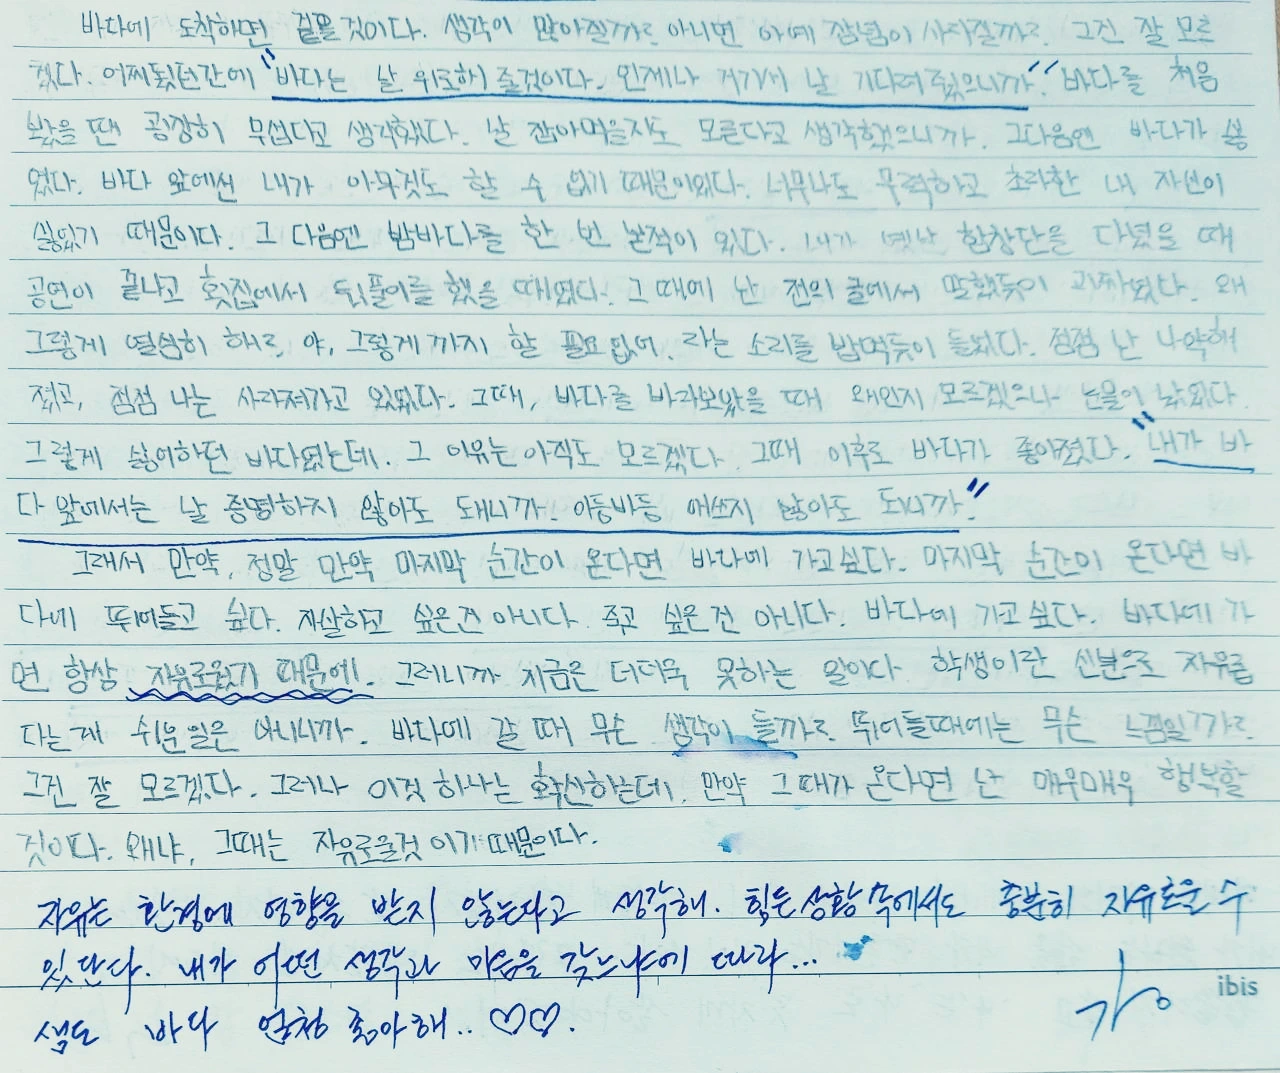 바다에 도착하면 걸을 것이다. 생각이 많아질까? 아니면 아예 잡념이 사라질까? 그건 잘 모르
겠다. 어찌됐던간에 "바다는 날 위로해 줄것이다. 언제나 거기서 날 기다려줬으니까." 바다를 처음
봤을 땐 굉장히 무섭다고 생각했다. 날 잡아먹을지도 모른다고 생각했으니까. 그다음엔 바다가 싫
었다. 바다 앞에선 내가 아무것도 할 수 없기 때문이었다. 너무나도 무력하고 초라한 내 자신이
싫었기 때문이다. 그 다음엔 밤바다를 한 번 본적이 있다. 내가 옛날 합창단을 다녔을 때
공연이 끝나고 횟집에서 뒤풀이를 했을 때였다. 그 때에 난 전의 글에서 말했듯이 괴짜였다. 왜
그렇게 열심히 해?, 야, 그렇게까지 할 필요없어. 라는 소리를 밥먹듯이 들었다. 점점 난 나약해
졌고, 점점 나는 사라져가고 있었다. 그때, 바다를 바라보았을 때 왜인지 모르겠으나 눈물이 났었다.
그렇게 싫어하던 바다였는데. 그 이유는 아직도 모르겠다. 그때 이후로 바다가 좋아졌다. "내가 바
다 앞에서는 날 증명하지 않아도 돼니까. 아등바등 애쓰지 않아도 되니까"
그래서 만약, 정말 만약 마지막 순간이 온다면 바다에 가고싶다. 마지막 순간이 온다면 바
다에 뛰어들고 싶다. 자살하고 싶은건 아니다. 죽고 싶은 건 아니다. 바다에 가고싶다. 바다에 가
면 항상 자유로웠기 때문에. 그러니까 지금은 더더욱 못하는 일이다. 학생이란 신분으로 자유롭
다는게 쉬운일은 아니니까. 바다에 갈 때 무슨 생각이 들까? 뛰어들때에는 무슨 느낌일까?
그건 잘 모르겠다. 그러나 이것 하나는 확신하는데. 만약 그때가 온다면 난 매우매우 행복할
것이다. 왜냐, 그때는 자유로울것 이기때문이다.
자유는 환경에 영향을 받지 않는다고 생각해. 힘든상황속에서도 충분히 자유로울 수
있단다. 내가 어떤 생각과 마음을 갖느냐에 따라...
샘도 바다 엄청 좋아해.. ♡♡.
ibis